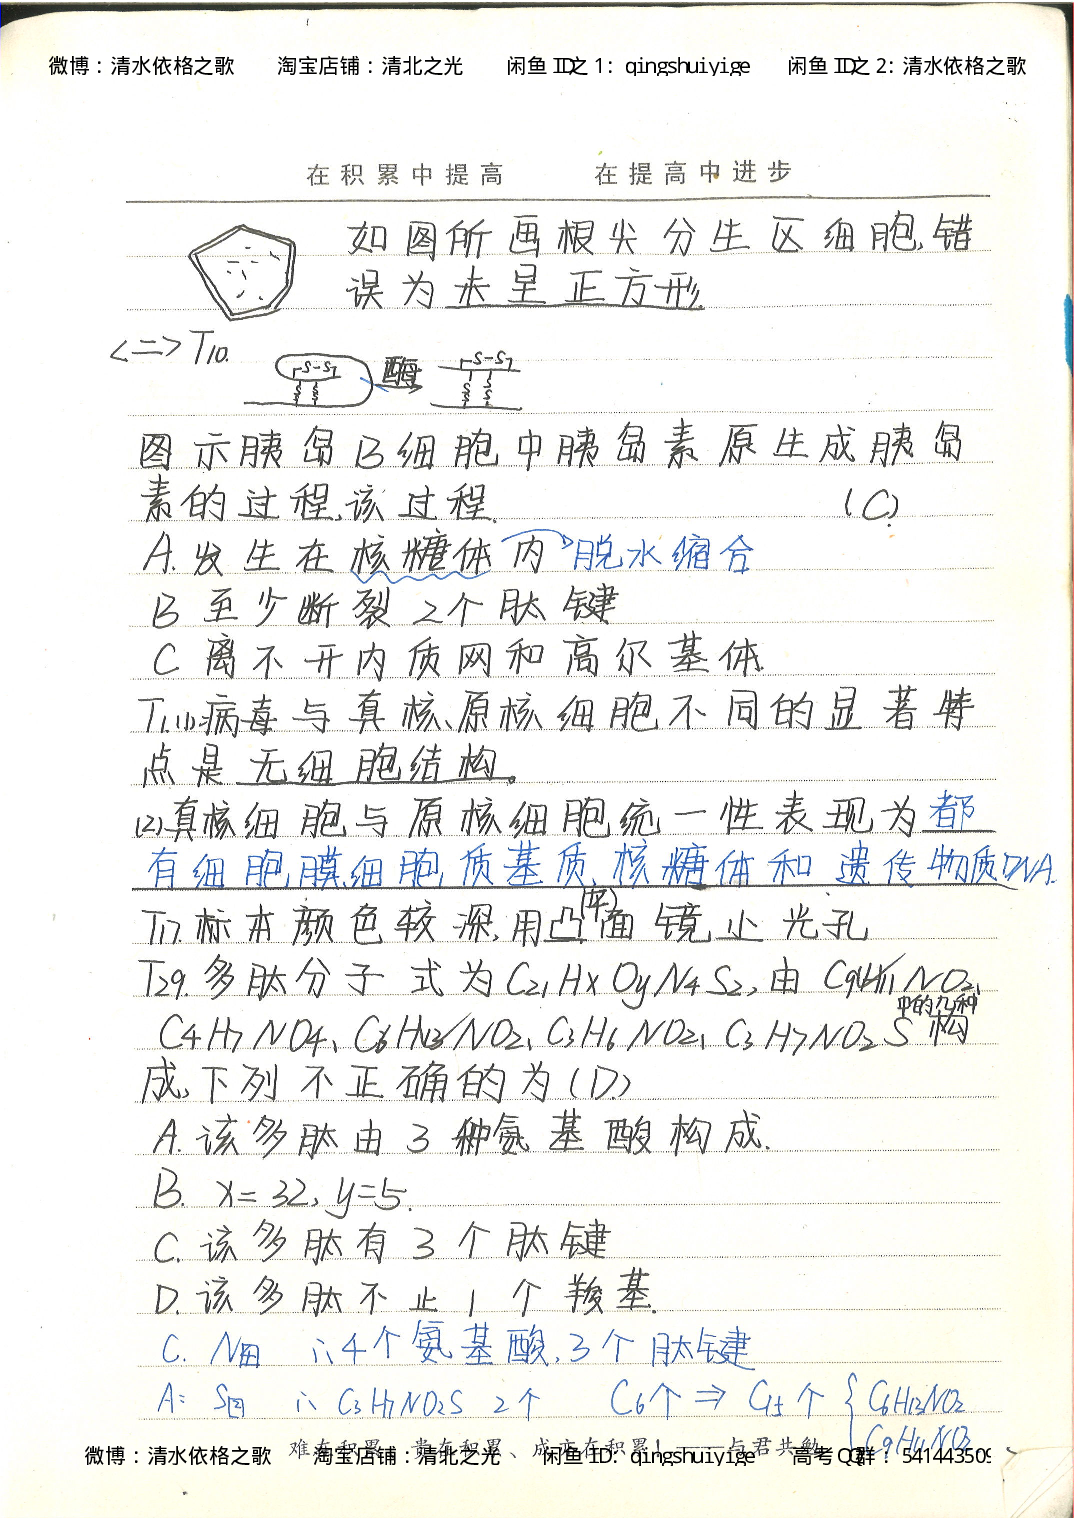 微博：清水依格之歌 淘宝店铺：清北之光 闲鱼 ID之 1: qingshuiyige 闲鱼 ID之 2: 清水依格之歌
在积累中提高 在提高中进步
如图所画根尖分生区细胞,错
误为未呈正方形
<二> T10.
S-S 酶 S-S
图示胰岛B细胞中胰岛素原生成胰岛
素的过程,该过程. (C)
A.发生在核糖体内 脱水缩合
B 至少断裂2个肽键
C 离不开内质网和高尔基体.
T1.(1).病毒与真核、原核细胞不同的显著特
点是无细胞结构。
(2).真核细胞与原核细胞统一性表现为都
有细胞膜、细胞质基质、核糖体和遗传物质DNA.
T17.标本颜色较深,用凸(平)面镜,小光孔
T29.多肽分子式为C21HxOyN4S2,由C9H11NO2、
C4H7NO4、C6H13NO2、C3H6NO2、C3H7NO2S中的几种构
成,下列不正确的为(D)
A.该多肽由3种氨基酸构成.
B. x=32, y=5.
C.该多肽有3个肽键
D.该多肽不止1个羧基.
C. N四 ∴4个氨基酸,3个肽键
A: S ∴ C3H7NO2S 2个 C6个 ⇒ C15个 { C6H13NO2
C9H11NO2
难在积累、贵在积累、成亦在积累！——与君共勉
微博：清水依格之歌 淘宝店铺：清北之光 闲鱼 ID: qingshuiyige 高考 QQ群：541443509